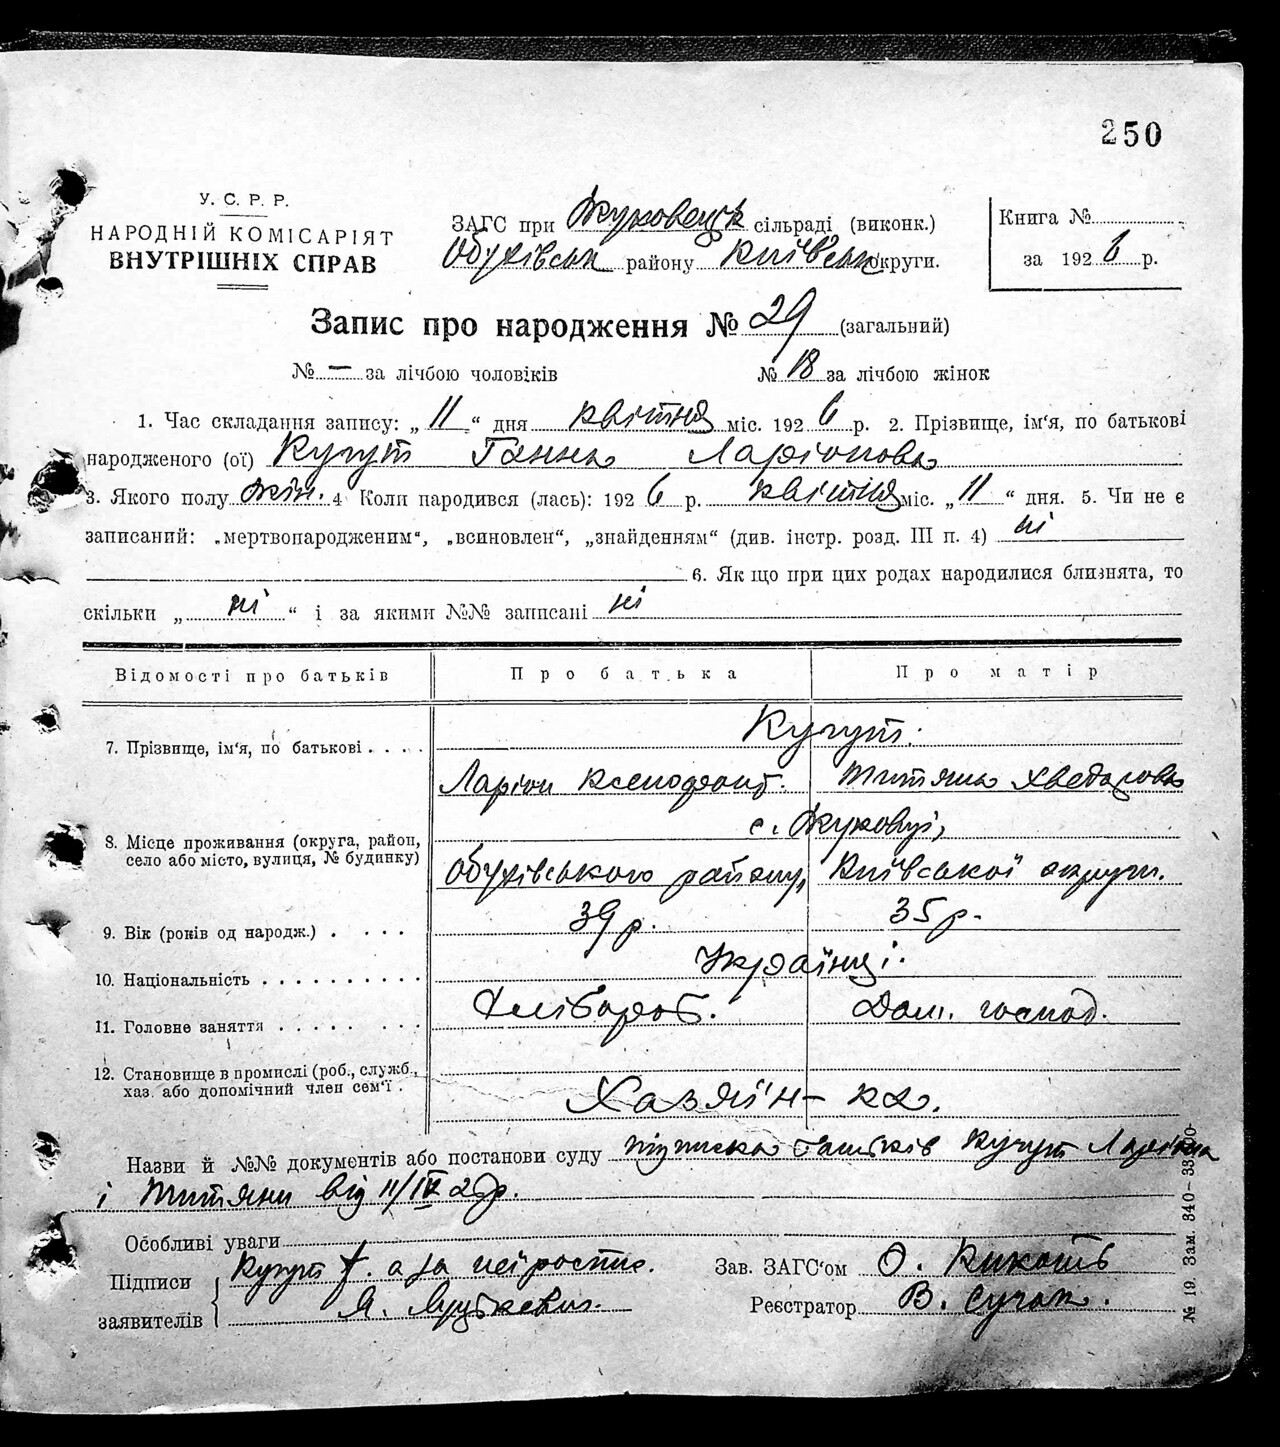 250
У. С. Р. Р.
НАРОДНІЙ КОМІСАРІЯТ
ВНУТРІШНІХ СПРАВ
ЗАГС при Жуковецьк сільраді (виконк.)
Обухівськ району Київськ округи.
Книга №
за 1926 р.
Запис про народження № 29 (загальний)
№ — за лічбою чоловіків № 18 за лічбою жінок
1. Час складання запису: „11“ дня квітня міс. 1926 р. 2. Прізвище, ім'я, по батькові
народженого (ої) Кугут Ганна Ларіонова
3. Якого полу жін. 4 Коли народився (лась): 1926 р. квітня міс. „11“ дня. 5. Чи не є
записаний: „мертвонародженим“, „всиновлен“, „знайденням“ (див. інстр. розд. III п. 4) ні
6. Як що при цих родах народилися близнята, то
скільки „ні“ і за якими №№ записані ні
Відомості про батьків Про батька Про матір
7. Прізвище, ім'я, по батькові Кугут.
Ларіон Ксенофонт. Титяна Хведорова
8. Місце проживання (округа, район, село або місто, вулиця, № будинку) с. Жуковці,
Обухівського району, Київської округи.
9. Вік (років од народж.) 39 р. 35 р.
10. Національність Українці.
11. Головне заняття Хлібороб. Дом. господ.
12. Становище в промислі (роб., служб., хаз. або допомічний член сем'ї. Хазяїн-ка.
Назви й №№ документів або постанови суду підписка батьків Кугут Ларіона
і Титяни від 11/IV 26 р.
Особливі уваги
Підписи заявителів Кугут а за неї росп.
Зав. ЗАГС'ом О.
Реєстратор В.
№ 19. Зам. 340-33